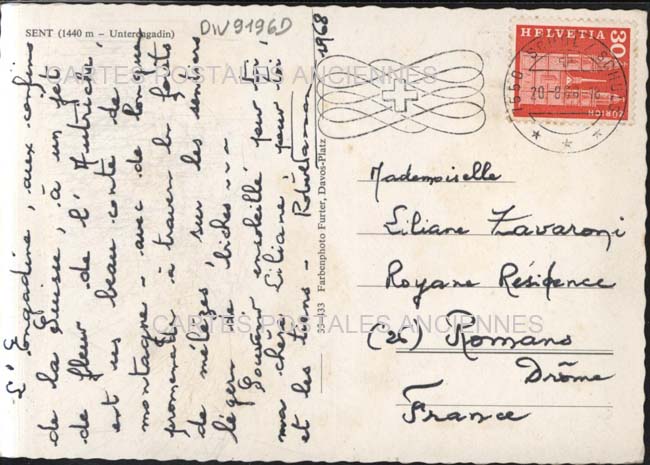 SENT (1440 m – Unterengadin)
DIV9196D
1968
L'Engadine, aux confins
de la Suisse, à un jet
de fleur de l'Autriche
est un beau conte de
montagne - avec de longues
promenades à travers la forêt
de mélèzes sur les sentiers
légers de biches ...
Soutien ensoleillé pour toi
ma chère Liliane pour toi
et les tiens -
39-433 Farbenphoto Furter, Davos-Platz
HELVETIA
30
ZÜRICH
20-8
Mademoiselle
Liliane Zavaroni
Royane Résidence
(26) Romans
Drôme
France
CARTES POSTALES ANCIENNES
CARTES POSTALES ANCIENNES